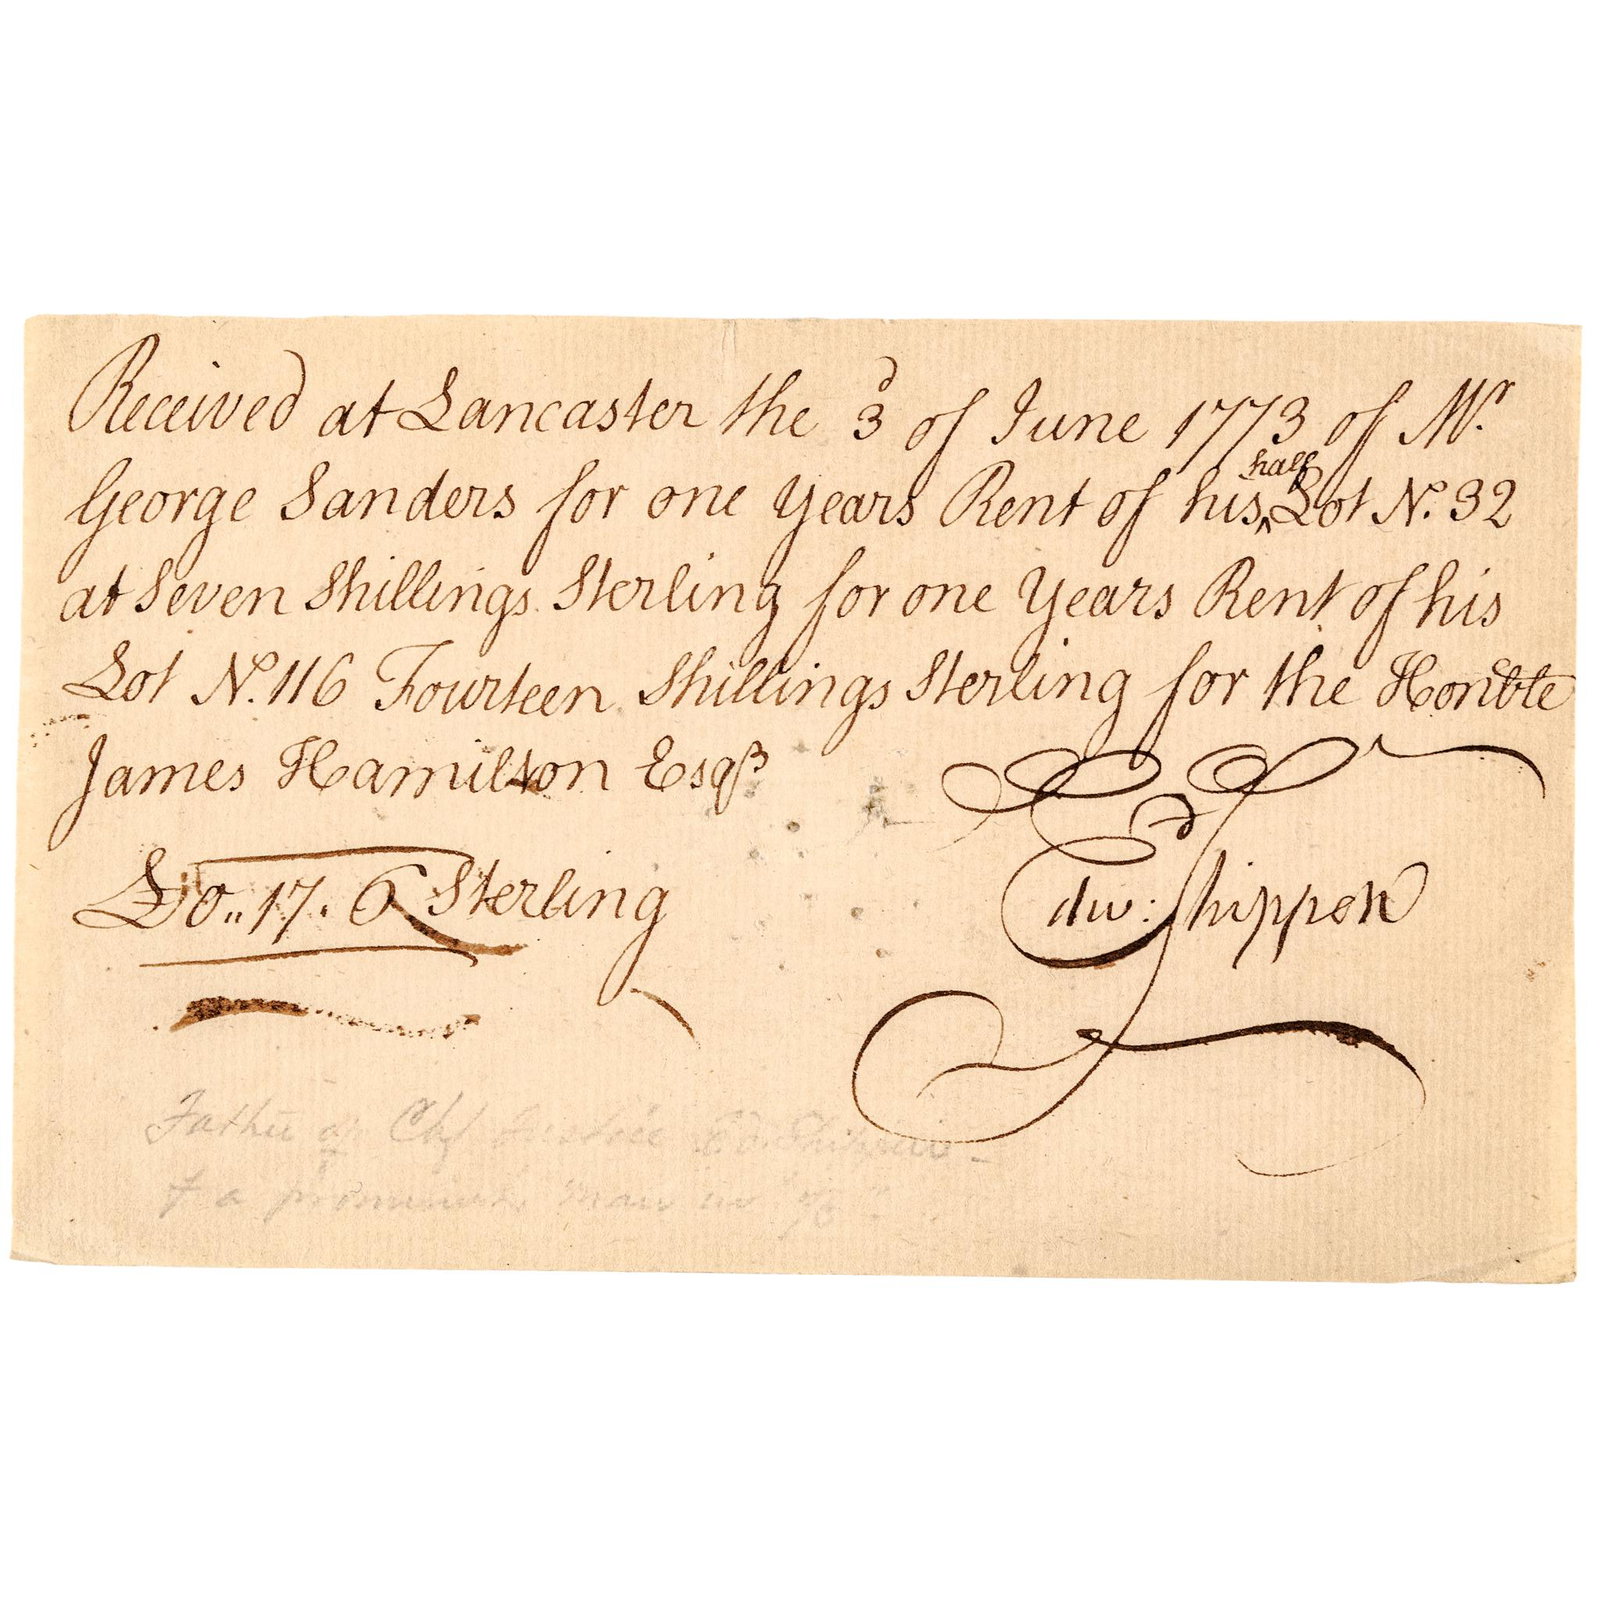 Received at Lancaster the 3d of June 1773 of Mr.
George Sanders for one Years Rent of his half Lot No. 32
at Seven Shillings Sterling for one Years Rent of his
Lot No. 116 Fourteen Shillings Sterling for the Honble
James Hamilton Esqr
£0.. 17. 6 Sterling
Edwd: Shippen
Father of Chf Justice Ed Shippen -
& a prominent man in